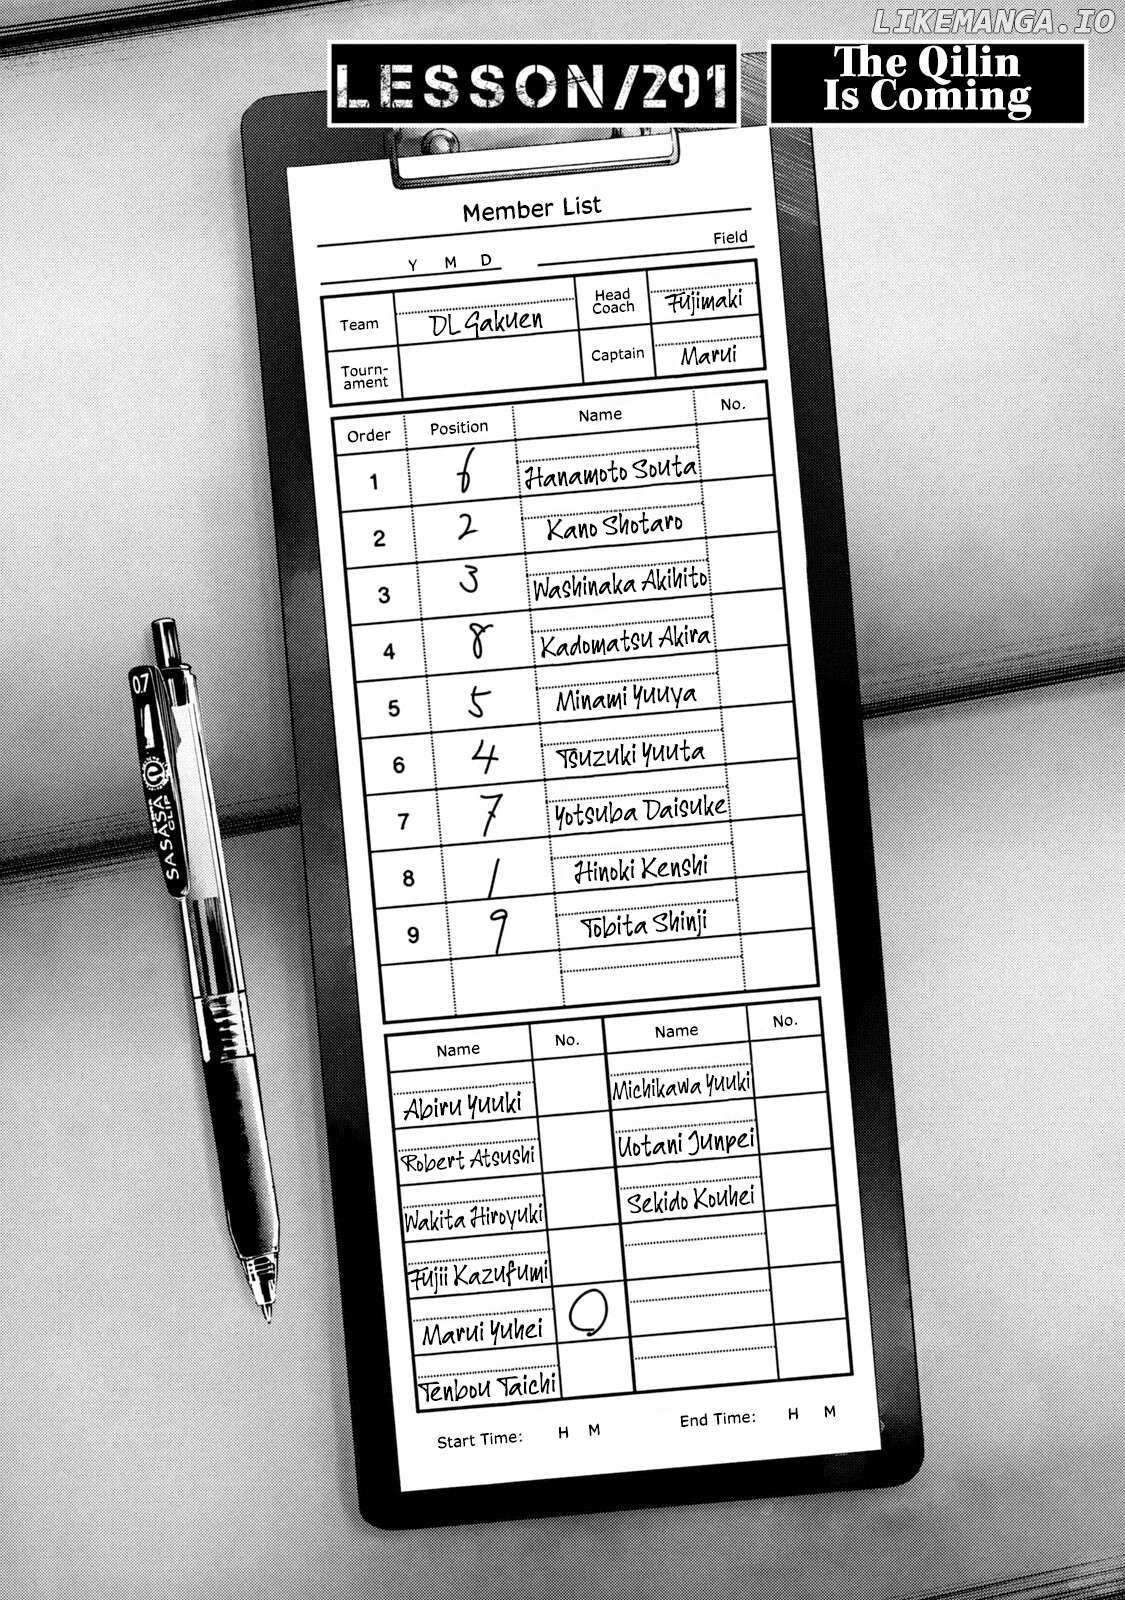 LIKEMANGA.IO
LESSON/291
The Qilin
Is Coming
Member List
Y M D
Field
Team
DL Gakuen
Head
Coach
Fujimaki
Tourn-
ament
Captain
Marui
Order Position Name No.
1 6 Hanamoto Souta
2 2 Kano Shotaro
3 3 Washinaka Akihito
4 8 Kadomatsu Akira
5 5 Minami Yuuya
6 4 Tsuzuki Yuuta
7 7 Yotsuba Daisuke
8 1 Hinoki Kenshi
9 9 Tobita Shinji
Name No. Name No.
Abiru Yuuki Michikawa Yuuki
Robert Atsushi Uotani Junpei
Wakita Hiroyuki Sekido Kouhei
Fujii Kazufumi
Marui Yuhei
Tenbou Taichi
Start Time: H M End Time: H M
0.7
SASASA
CLIP